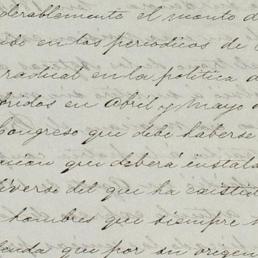 derablemente el monto de
ido en los periodicos de
radical en la politica d
bridos en Abril y Mayo d
Congreso que debe haberse
nion que deberá instala
diverso del que ha existid
hombres que siempre
que por su origen